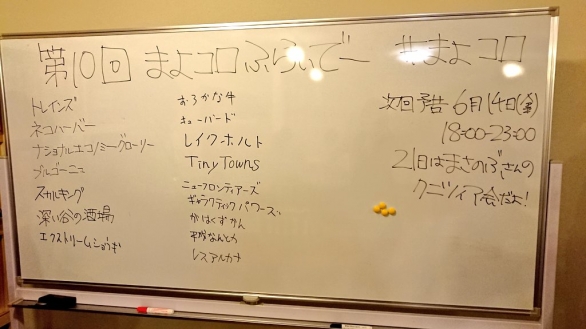 第10回 まよコロふらいでー #まよコロ
トレインズ
ネコハーバー
ナショナルエコノミーグローリー
ブルゴーニュ
スカルキング
深い谷の酒場
エクストリームしょうぎ
おろかな牛
キューバード
レイクホルト
Tiny Towns
ニューフロンティアーズ
ギャラクティックパワーズ
かはくずかん
平城なんとか
レスアルカナ
次回予告 6月14日(金)
18:00-23:00
21日はまさのぶさんの
クニツィア会だよ!